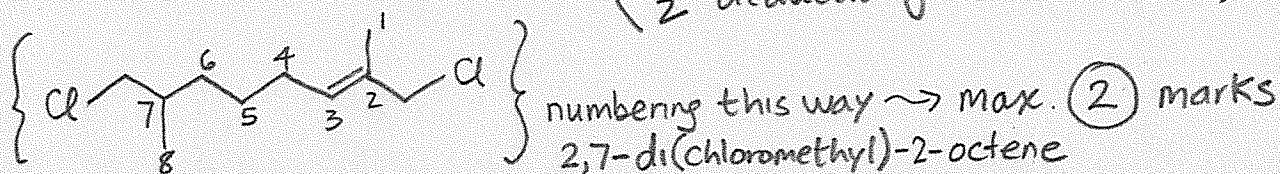 (2
1
Cl 7 6 5 4 3 2 Cl
8
numbering this way ⤳ max. 2 marks
2,7-di(chloromethyl)-2-octene